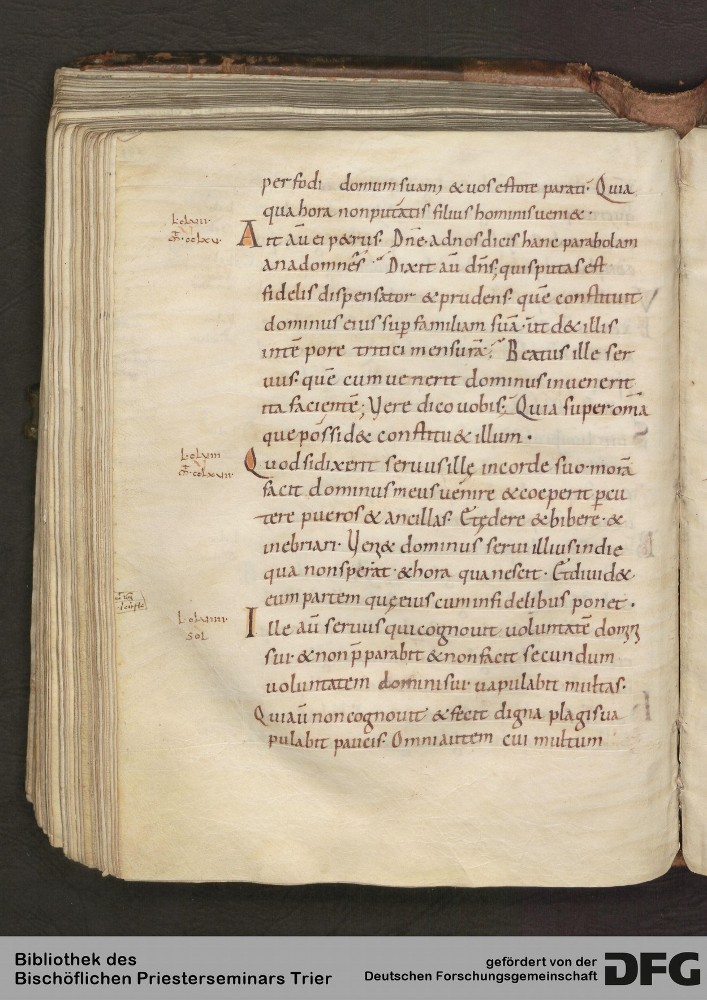 perfodi domum suam, & uos estote parati· Quia
qua hora non putatis filius hominis ueni&·
Ait aū ei p&rus· Dn̄e· ad nos dicis hanc parabolam
an ad omnes· Dixit aū dn̄s; quis putas est
fidelis dispensator & prudens· quē constituit
dominus eius sup familiam suā· ut d& illis
in tēpore tritici mensurā; Beatus ille ser
uus· quē cum uenerit dominus inuenerit
ita facientē; Vere dico uobis; Quia super omīa
que possid& constitu& illum·
Quod si dixerit seruus ille in corde suo· morā
facit dominus meus uenire & coeperit pcu
tere pueros & ancillas· Et edere & bibere· &
inebriari· Veni& dominus serui illius in die
qua non sperat· & hora qua nescit· Et diuid&
eum partem que eius cum infidelibus ponet·
Ille aū seruus qui cognouit uoluntatē domini
sui· & non p̄parabit & non facit secundum
uoluntatem domini sui uapulabit multas·
Qui aū non cognouit & fecit digna plagis ua
pulabit paucis· Omni autem cui multum
sol
Bibliothek des
Bischöflichen Priesterseminars Trier
gefördert von der
Deutschen Forschungsgemeinschaft
DFG